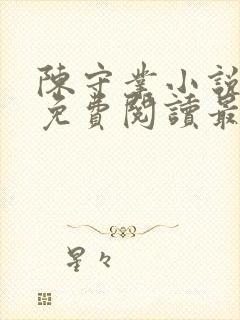 陳守業小說
免費閱讀最
星々